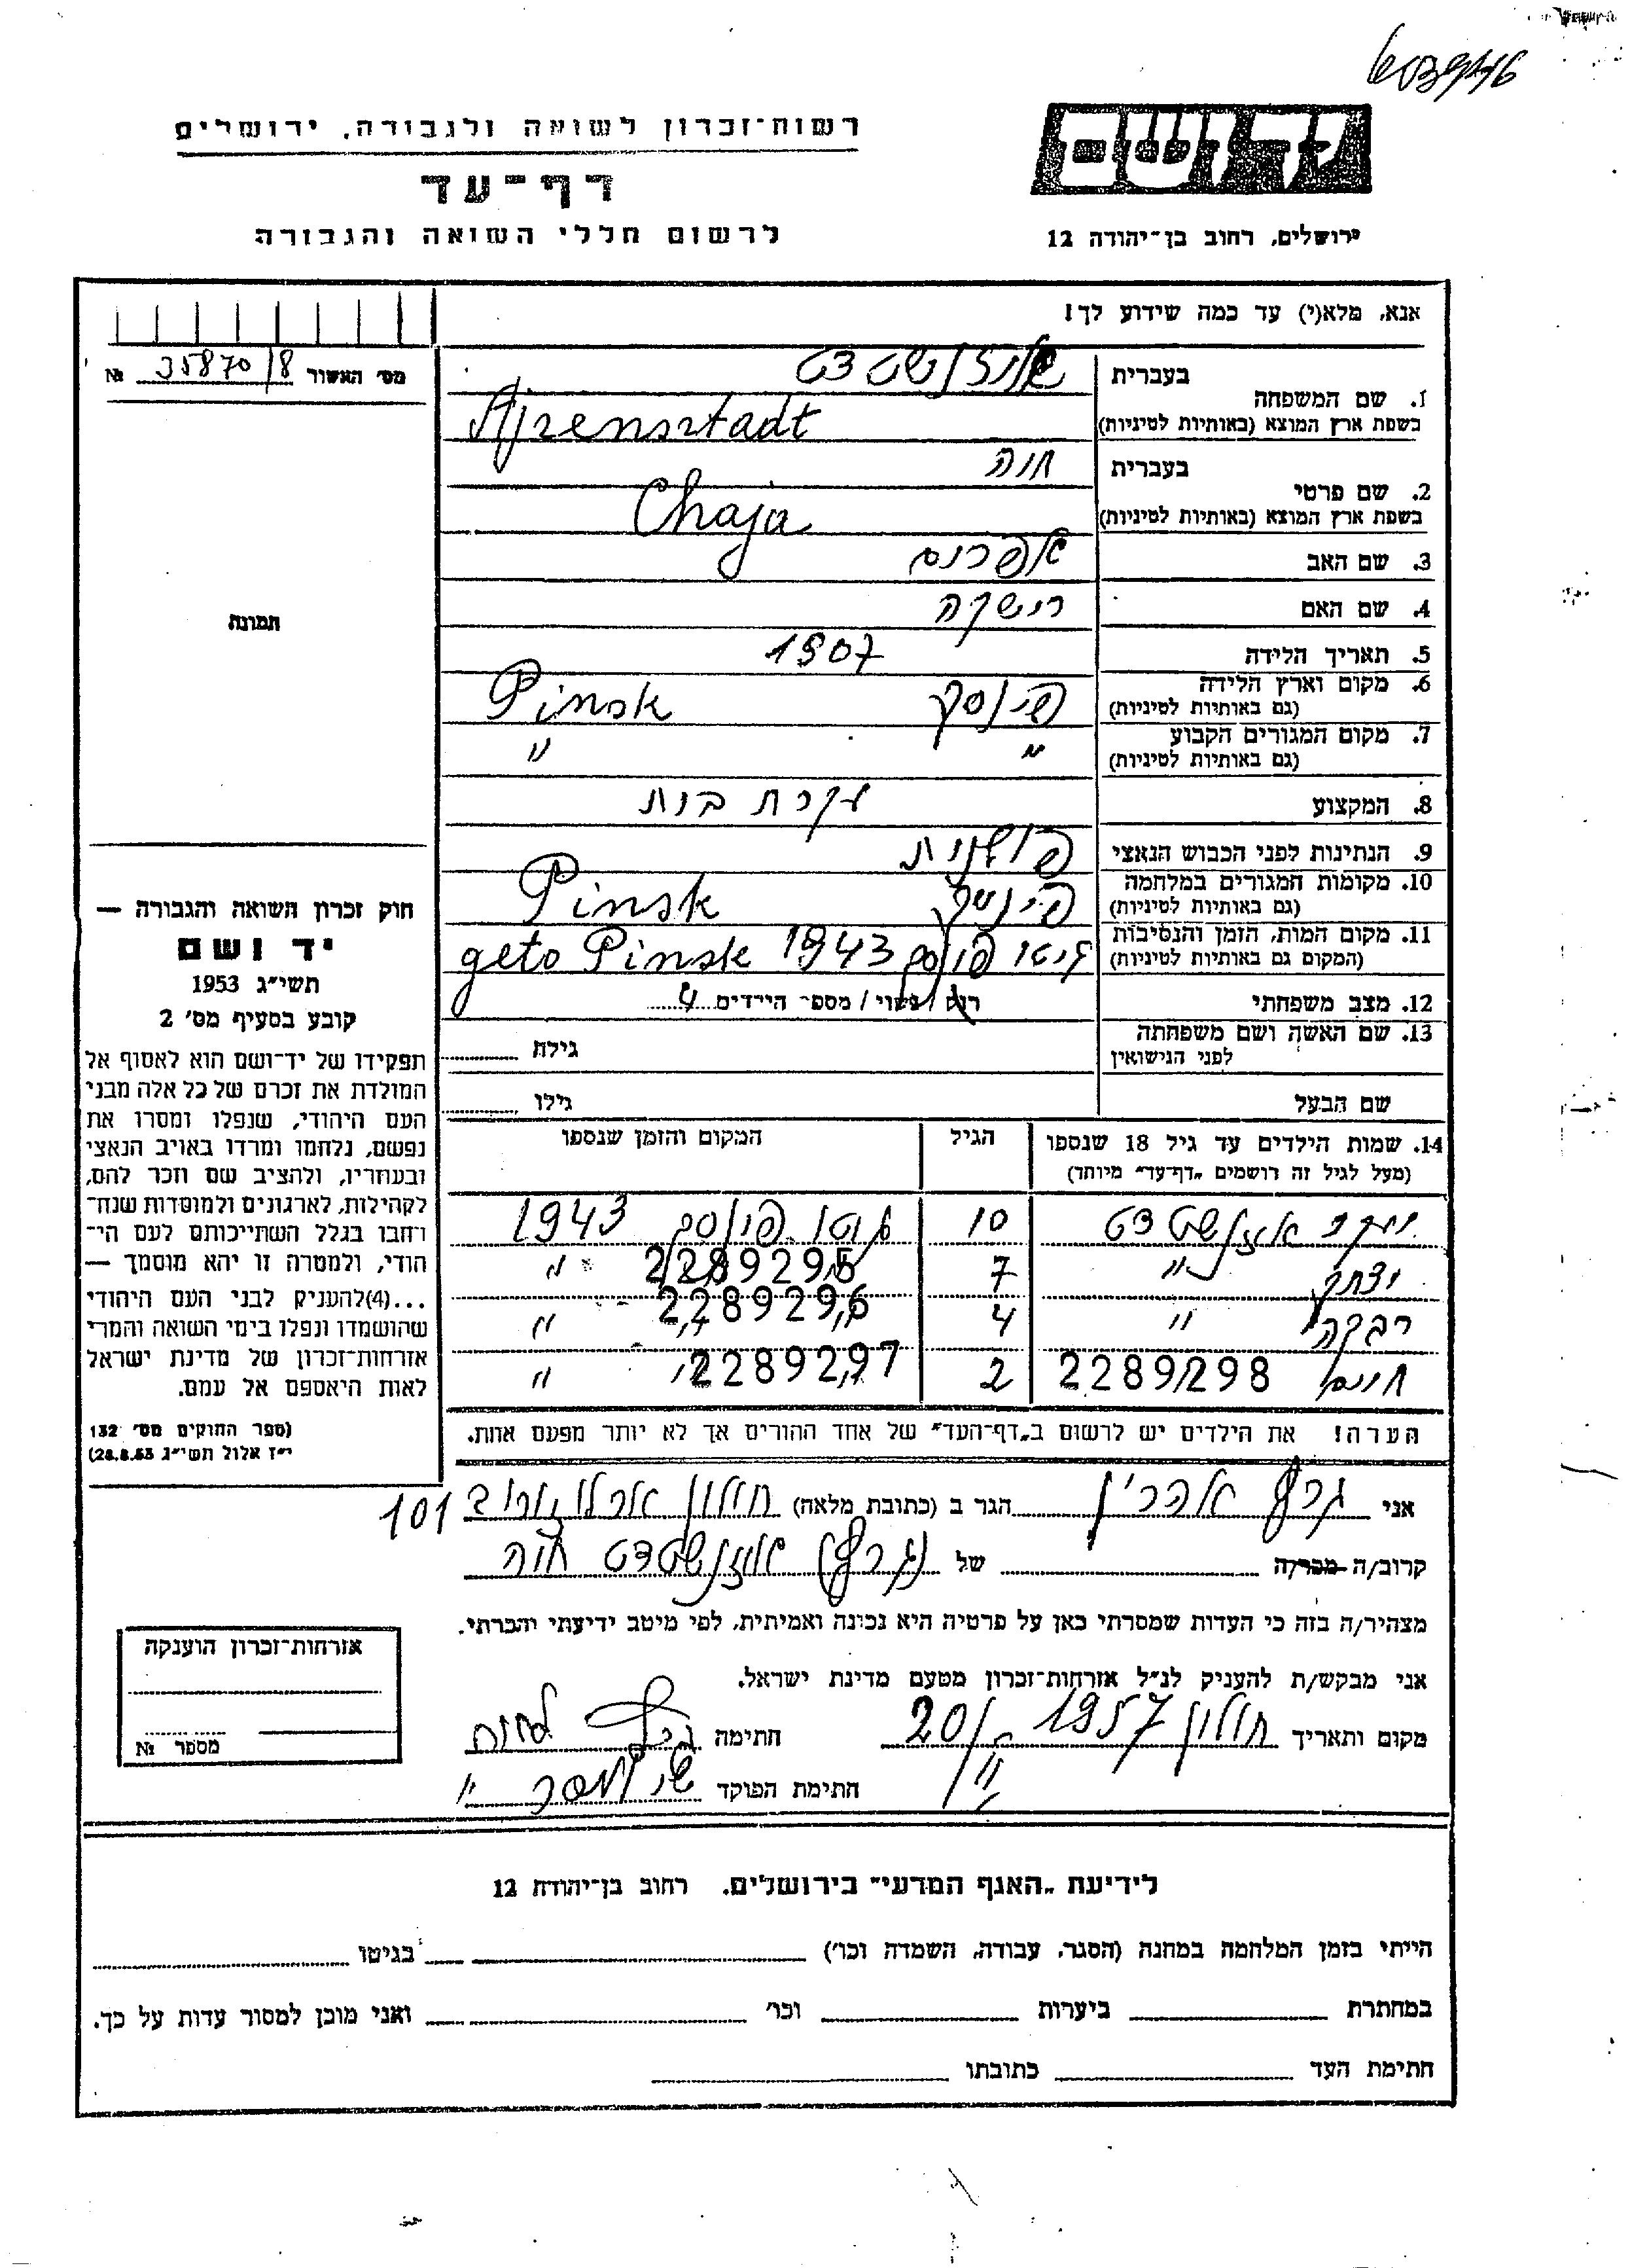 רשות־זכרון לשואה ולגבורה, ירושלים
דף־עד
לרשום חללי השואה והגבורה
יד ושם
ירושלים, רחוב בן־יהודה 12
אנא, מלא(י) עד כמה שידוע לך!
מס׳ האשור 35870/8 №
תמונה
1. שם המשפחה
בעברית אייזנשטדט
בשפת ארץ המוצא (באותיות לטיניות) Ajzensztadt
2. שם פרטי
בעברית חיה
בשפת ארץ המוצא (באותיות לטיניות) Chaja
3. שם האב אפרים
4. שם האם רישקה
5. תאריך הלידה 1907
6. מקום וארץ הלידה פינסק Pinsk
(גם באותיות לטיניות)
7. מקום המגורים הקבוע " "
(גם באותיות לטיניות)
8. המקצוע עקרת בית
9. הנתינות לפני הכבוש הנאצי פולנית
10. מקומות המגורים במלחמה פינסק Pinsk
(גם באותיות לטיניות)
11. מקום המות, הזמן והנסיבות גיטו פינסק 1943 geto Pinsk
(המקום גם באותיות לטיניות)
12. מצב משפחתי רוק / נשוי / מספר הילדים 4
13. שם האשה ושם משפחתה גילה
לפני הנישואין
שם הבעל גילו
14. שמות הילדים עד גיל 18 שנספו הגיל המקום והזמן שנספו
(מעל לגיל זה רושמים „דף־עד" מיוחד)
יעקב אייזנשטדט 10 גיטו פינסק 1943
יצחק " 7 2289295 "
רבקה " 4 2289296 "
חיים 2289298 2 2289297 "
הערה! את הילדים יש לרשום ב„דף־העד" של אחד ההורים אך לא יותר מפעם אחת.
חוק זכרון השואה והגבורה —
יד ושם
תשי״ג 1953
קובע בסעיף מס׳ 2
תפקידו של יד־ושם הוא לאסוף אל
המולדת את זכרם של כל אלה מבני
העם היהודי, שנפלו ומסרו את
נפשם, נלחמו ומרדו באויב הנאצי
ובעוזריו, ולהציב שם וזכר להם,
לקהילות, לארגונים ולמוסדות שנח־
רחבו בגלל השתייכותם לעם הי־
הודי, ולמטרה זו יהא מוסמך —
...(4)להעניק לבני העם היהודי
שהושמדו ונפלו בימי השואה והמרי
אזרחות־זכרון של מדינת ישראל
לאות היאספם אל עמם.
(ספר החוקים מס׳ 132
י״ז אלול תשי״ג 28.8.53)
אני הגר ב (כתובת מלאה) חולון ארלוזורוב 101
קרוב/ה מכר/ה של אייזנשטדט חיה
מצהיר/ה בזה כי העדות שמסרתי כאן על פרטיה היא נכונה ואמיתית, לפי מיטב ידיעתי והכרתי.
אני מבקש/ת להעניק לנ״ל אזרחות־זכרון מטעם מדינת ישראל.
מקום ותאריך חולון 1957 חתימה
חתימת הפוקד
אזרחות־זכרון הוענקה
מספר №
לידיעת „האגף המדעי" בירושלים, רחוב בן־יהודה 12
הייתי בזמן המלחמה במחנה (הסגר, עבודה, השמדה וכו׳) בגיטו
במחתרת ביערות וכו׳ ואני מוכן למסור עדות על כך.
חתימת העד כתובתו